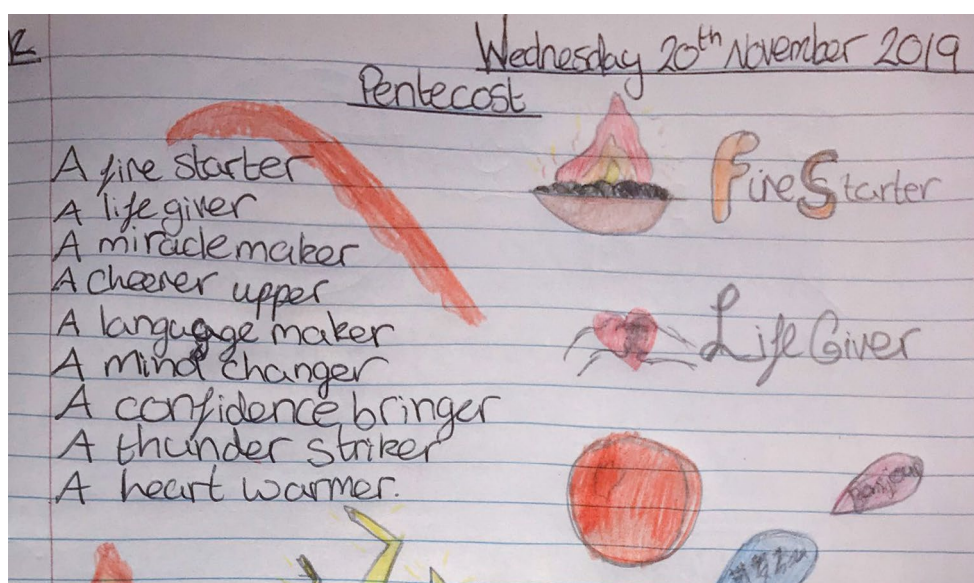 Wednesday 20th November 2019
Pentecost
A fire starter
A life giver
A miracle maker
A cheerer upper
A language maker
A mind changer
A confidence bringer
A thunder striker
A heart warmer.
Fire Starter
Life Giver
Bonjour